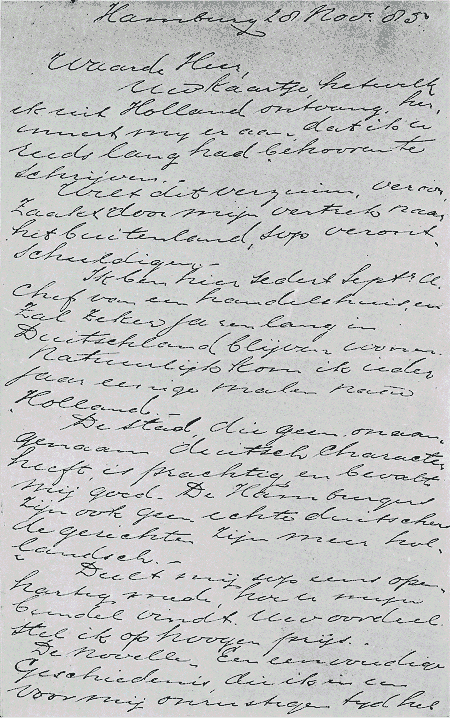 Hamburg 28 Nov. '85
Waarde Heer,
Uw kaartje hetwelk
ik uit Holland ontvang, her-
innert mij er aan, dat ik u
reeds lang had behooren te
schrijven.
Wilt dit verzuim, veroor-
zaakt door mijn vertrek naar
het buitenland, s.v.p veront-
schuldigen.
Ik ben hier sedert Septr ll.
Chef van een handelshuis en
zal zeker jaren lang in
Duitschland blijven wonen.
Natuurlijk kom ik ieder
jaar eenige malen naar
Holland.
De stad, die geen onaan-
genaam deutsch Character
heeft, is prachtig en bevalt
mij goed. De Hamburgers
zijn ook geen echte duitschers
de gezichten zijn meer hol-
landsch.
Deelt mij svp eens open-
hartig mede, hoe u mijn
bundel vindt. Uw oordeel
stel ik op hoogen prijs.
De novelle Een eenvoudige
Geschiedenis, die ik in een
voor mij onrustigen tijd heb